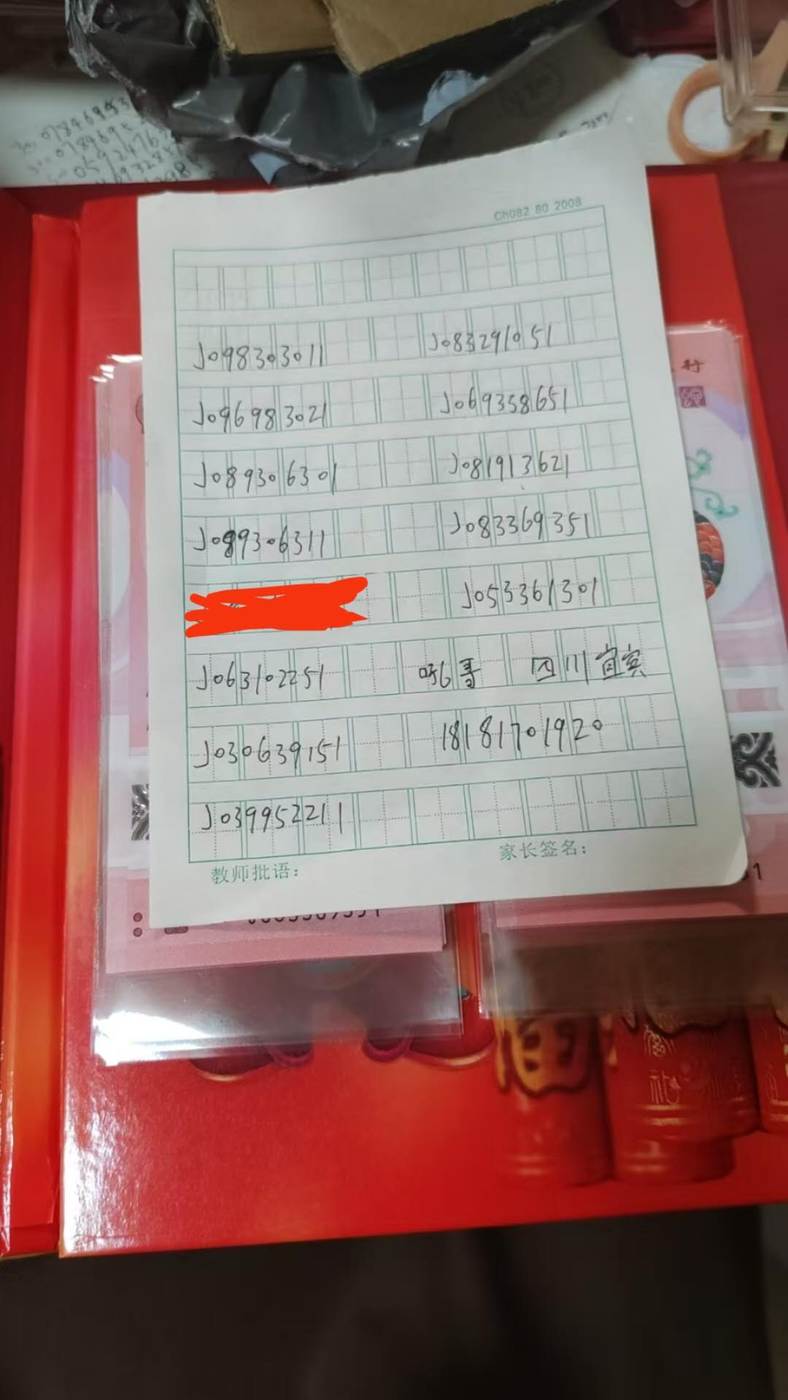 CH082 80 2008
J098303011 J083291051
J096983021 J069358651
J089306301 J081913621
J089306311 J083369351
J053361301
J063102251 哥 四川宜宾
J030639151 18181701920
J039952211
教师批语： 家长签名：